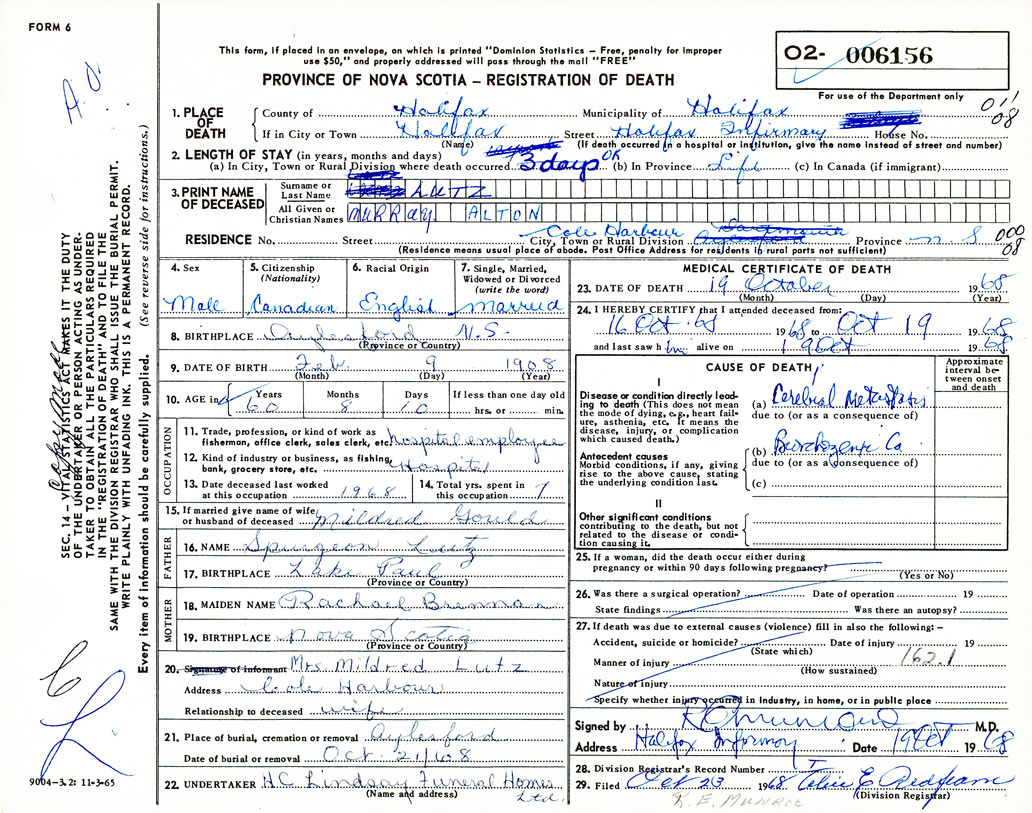 FORM 6
This form, if placed in an envelope, on which is printed "Dominion Statistics – Free, penalty for improper
use $50," and properly addressed will pass through the mail "FREE"
PROVINCE OF NOVA SCOTIA – REGISTRATION OF DEATH
O2- 006156
For use of the Department only
011
08
A.O
1. PLACE OF DEATH
County of Halifax Municipality of Halifax
If in City or Town Halifax Street Halifax Infirmary House No.
(Name) (If death occurred in a hospital or institution, give the name instead of street and number)
2. LENGTH OF STAY (in years, months and days)
(a) In City, Town or Rural Division where death occurred 3 days OK (b) In Province Life (c) In Canada (if immigrant)
3. PRINT NAME OF DECEASED
Surname or Last Name LUTZ
All Given or Christian Names MURRAY ALTON
RESIDENCE No. Street Cole Harbour Dartmouth Aylesford Province N S
City, Town or Rural Division
(Residence means usual place of abode. Post Office Address for residents in rural parts not sufficient)
000
08
4. Sex 5. Citizenship (Nationality) 6. Racial Origin 7. Single, Married, Widowed or Divorced (write the word)
Male Canadian English Married
8. BIRTHPLACE Aylesford N.S.
(Province or Country)
9. DATE OF BIRTH Feb. 9 1908
(Month) (Day) (Year)
10. AGE in Years Months Days If less than one day old
60 8 10 hrs. or min.
OCCUPATION
11. Trade, profession, or kind of work as
fisherman, office clerk, sales clerk, etc. hospital employee
12. Kind of industry or business, as fishing,
bank, grocery store, etc. Hospital
13. Date deceased last worked at this occupation 1968
14. Total yrs. spent in this occupation 7
15. If married give name of wife
or husband of deceased Mildred Gould
FATHER
16. NAME Spurgeon Lutz
17. BIRTHPLACE Lake Paul
(Province or Country)
MOTHER
18. MAIDEN NAME Rachael Brennan
19. BIRTHPLACE Nova Scotia
(Province or Country)
20. Signature of informant Mrs Mildred Lutz
Address Cole Harbour
Relationship to deceased wife
21. Place of burial, cremation or removal Aylesford
Date of burial or removal Oct. 21/68
22. UNDERTAKER H C Lindsay Funeral Homes
(Name and address) Ltd.
MEDICAL CERTIFICATE OF DEATH
23. DATE OF DEATH 19 October 1968
(Month) (Day) (Year)
24. I HEREBY CERTIFY that I attended deceased from:
16 Oct. 68 1968 to Oct 19 1968
and last saw him alive on 19 Oct 1968
CAUSE OF DEATH
Approximate interval between onset and death
I
Disease or condition directly leading to death (This does not mean
the mode of dying, e.g., heart failure, asthenia, etc. It means the
disease, injury, or complication
which caused death.)
(a) Cerebral Metastasis
due to (or as a consequence of)
Antecedent causes
Morbid conditions, if any, giving
rise to the above cause, stating
the underlying condition last.
(b) Bronchogenic Ca
due to (or as a consequence of)
(c)
II
Other significant conditions
contributing to the death, but not
related to the disease or condition causing it.
25. If a woman, did the death occur either during
pregnancy or within 90 days following pregnancy?
(Yes or No)
26. Was there a surgical operation? Date of operation 19
State findings Was there an autopsy?
27. If death was due to external causes (violence) fill in also the following: –
Accident, suicide or homicide? Date of injury 19
(State which)
162.1
Manner of injury
(How sustained)
Nature of injury
Specify whether injury occurred in Industry, in home, or in public place
Signed by M.D.
Address Halifax Infirmary Date 19 Oct 1968
28. Division Registrar's Record Number
29. Filed Oct 23 1968
(Division Registrar)
R. E. MUNROE
SEC. 14 – VITAL STATISTICS ACT MAKES IT THE DUTY
OF THE UNDERTAKER OR PERSON ACTING AS UNDERTAKER TO OBTAIN ALL THE PARTICULARS REQUIRED
IN THE "REGISTRATION OF DEATH" AND TO FILE THE
SAME WITH THE DIVISION REGISTRAR WHO SHALL ISSUE THE BURIAL PERMIT.
WRITE PLAINLY WITH UNFADING INK. THIS IS A PERMANENT RECORD.
Every item of information should be carefully supplied. (See reverse side for instructions.)
9004–3.2: 11-3-65